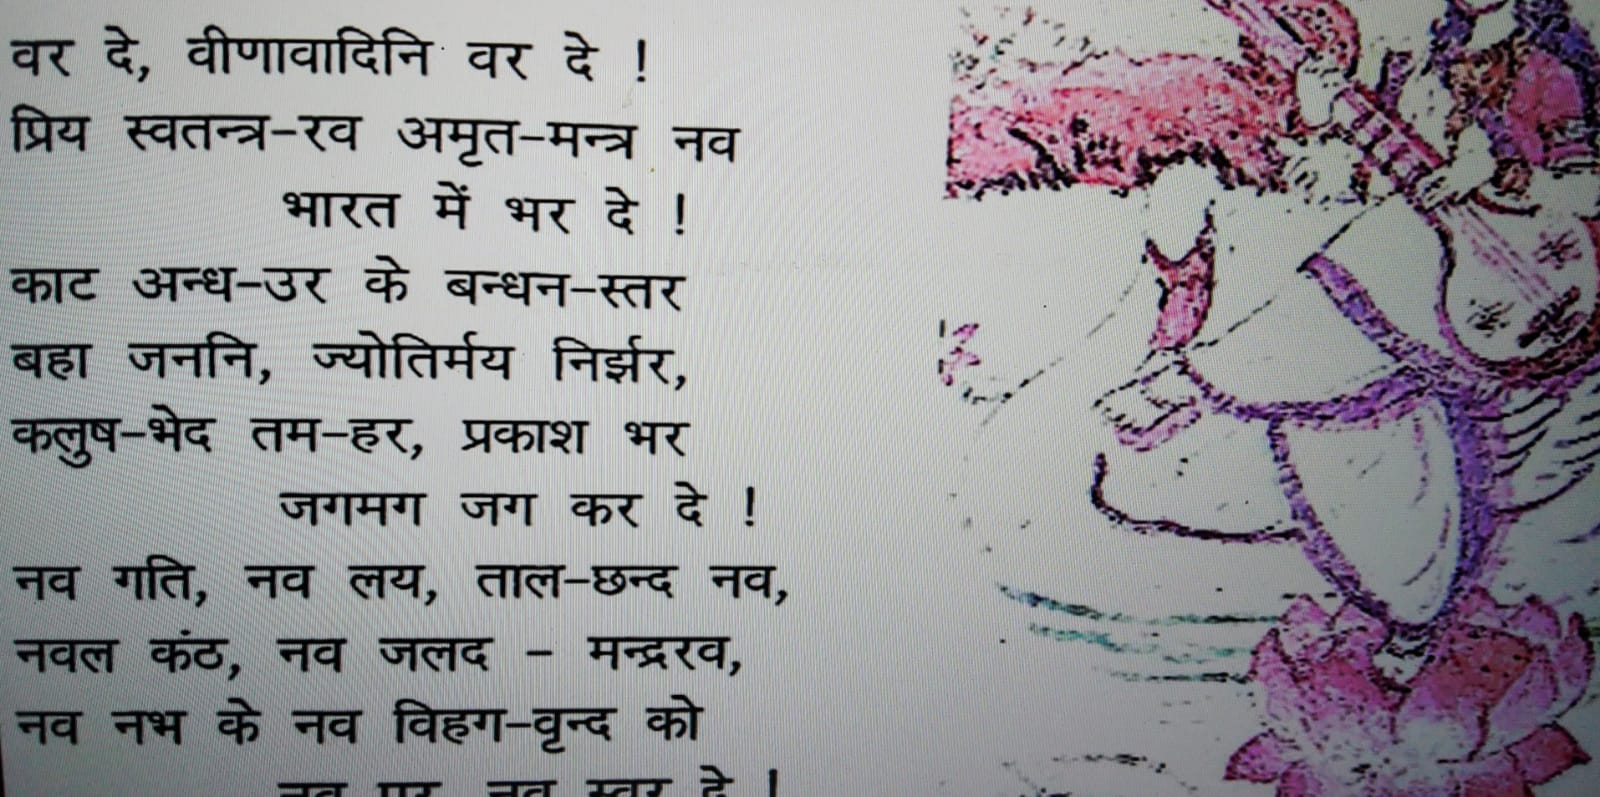 वर दे, वीणावादिनि वर दे !
प्रिय स्वतन्त्र-रव अमृत-मन्त्र नव
भारत में भर दे !
काट अन्ध-उर के बन्धन-स्तर
बहा जननि, ज्योतिर्मय निर्झर,
कलुष-भेद तम-हर, प्रकाश भर
जगमग जग कर दे !
नव गति, नव लय, ताल-छन्द नव,
नवल कंठ, नव जलद - मन्द्ररव,
नव नभ के नव विहग-वृन्द को
नव पर नव स्वर दे !